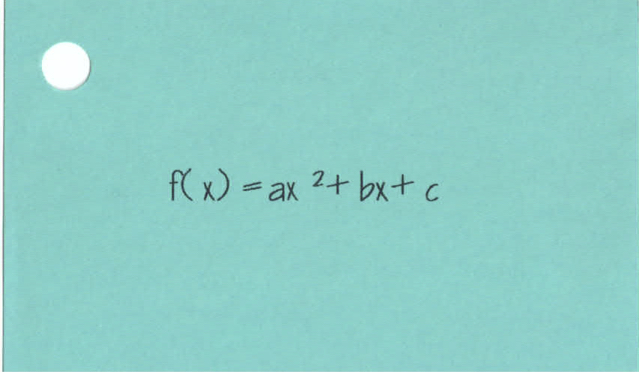 f(x) = ax ²+ bx+ c